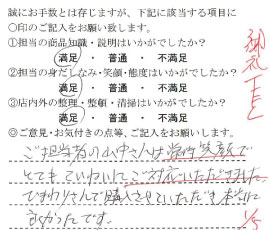 誠にお手数とは存じますが、下記に該当する項目に
○印のご記入をお願い致します。
①担当の商品知識・説明はいかがでしたか？
満足 ・ 普通 ・ 不満足
②担当の身だしなみ・笑顔・態度はいかがでしたか？
満足 ・ 普通 ・ 不満足
③店内外の整理・整頓・清掃はいかがでしたか？
満足 ・ 普通 ・ 不満足
◎ご意見・お気付きの点等、ご記入をお願いします。
ご担当者の山中さんは常時笑顔で
とてもていねいにご対応いただきました
ひまわりさんで購入させていただき本当に
良かったです。
御礼TEL